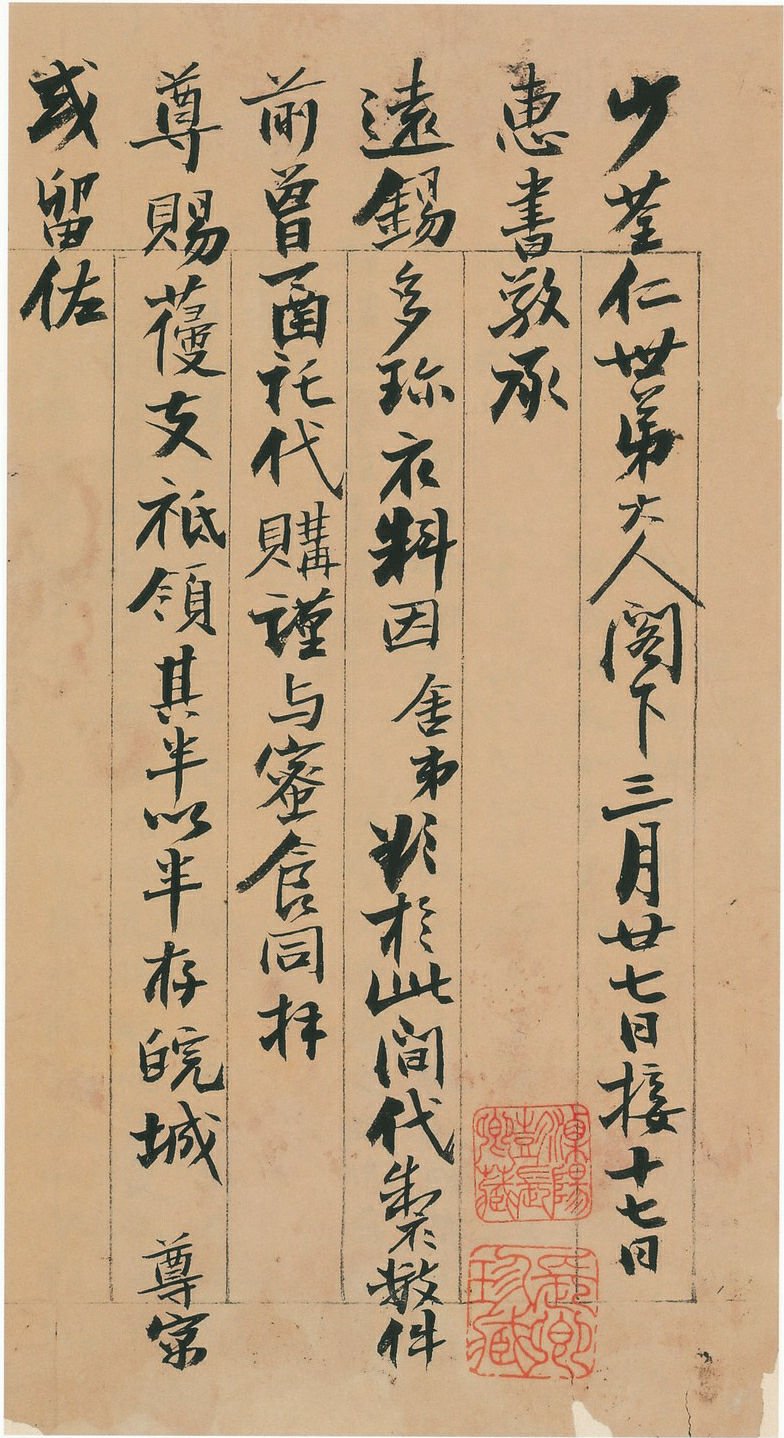 少荃仁世弟大人閣下三月廿七日接十七日
惠書敬承
遠錫多珎衣料因舍弟於此間代製數件
前曾函託代購謹与蜜食同拜
尊賜葠支祇領其半以半存皖城 尊
或留佐
溧陽彭長卿藏
長卿珍藏